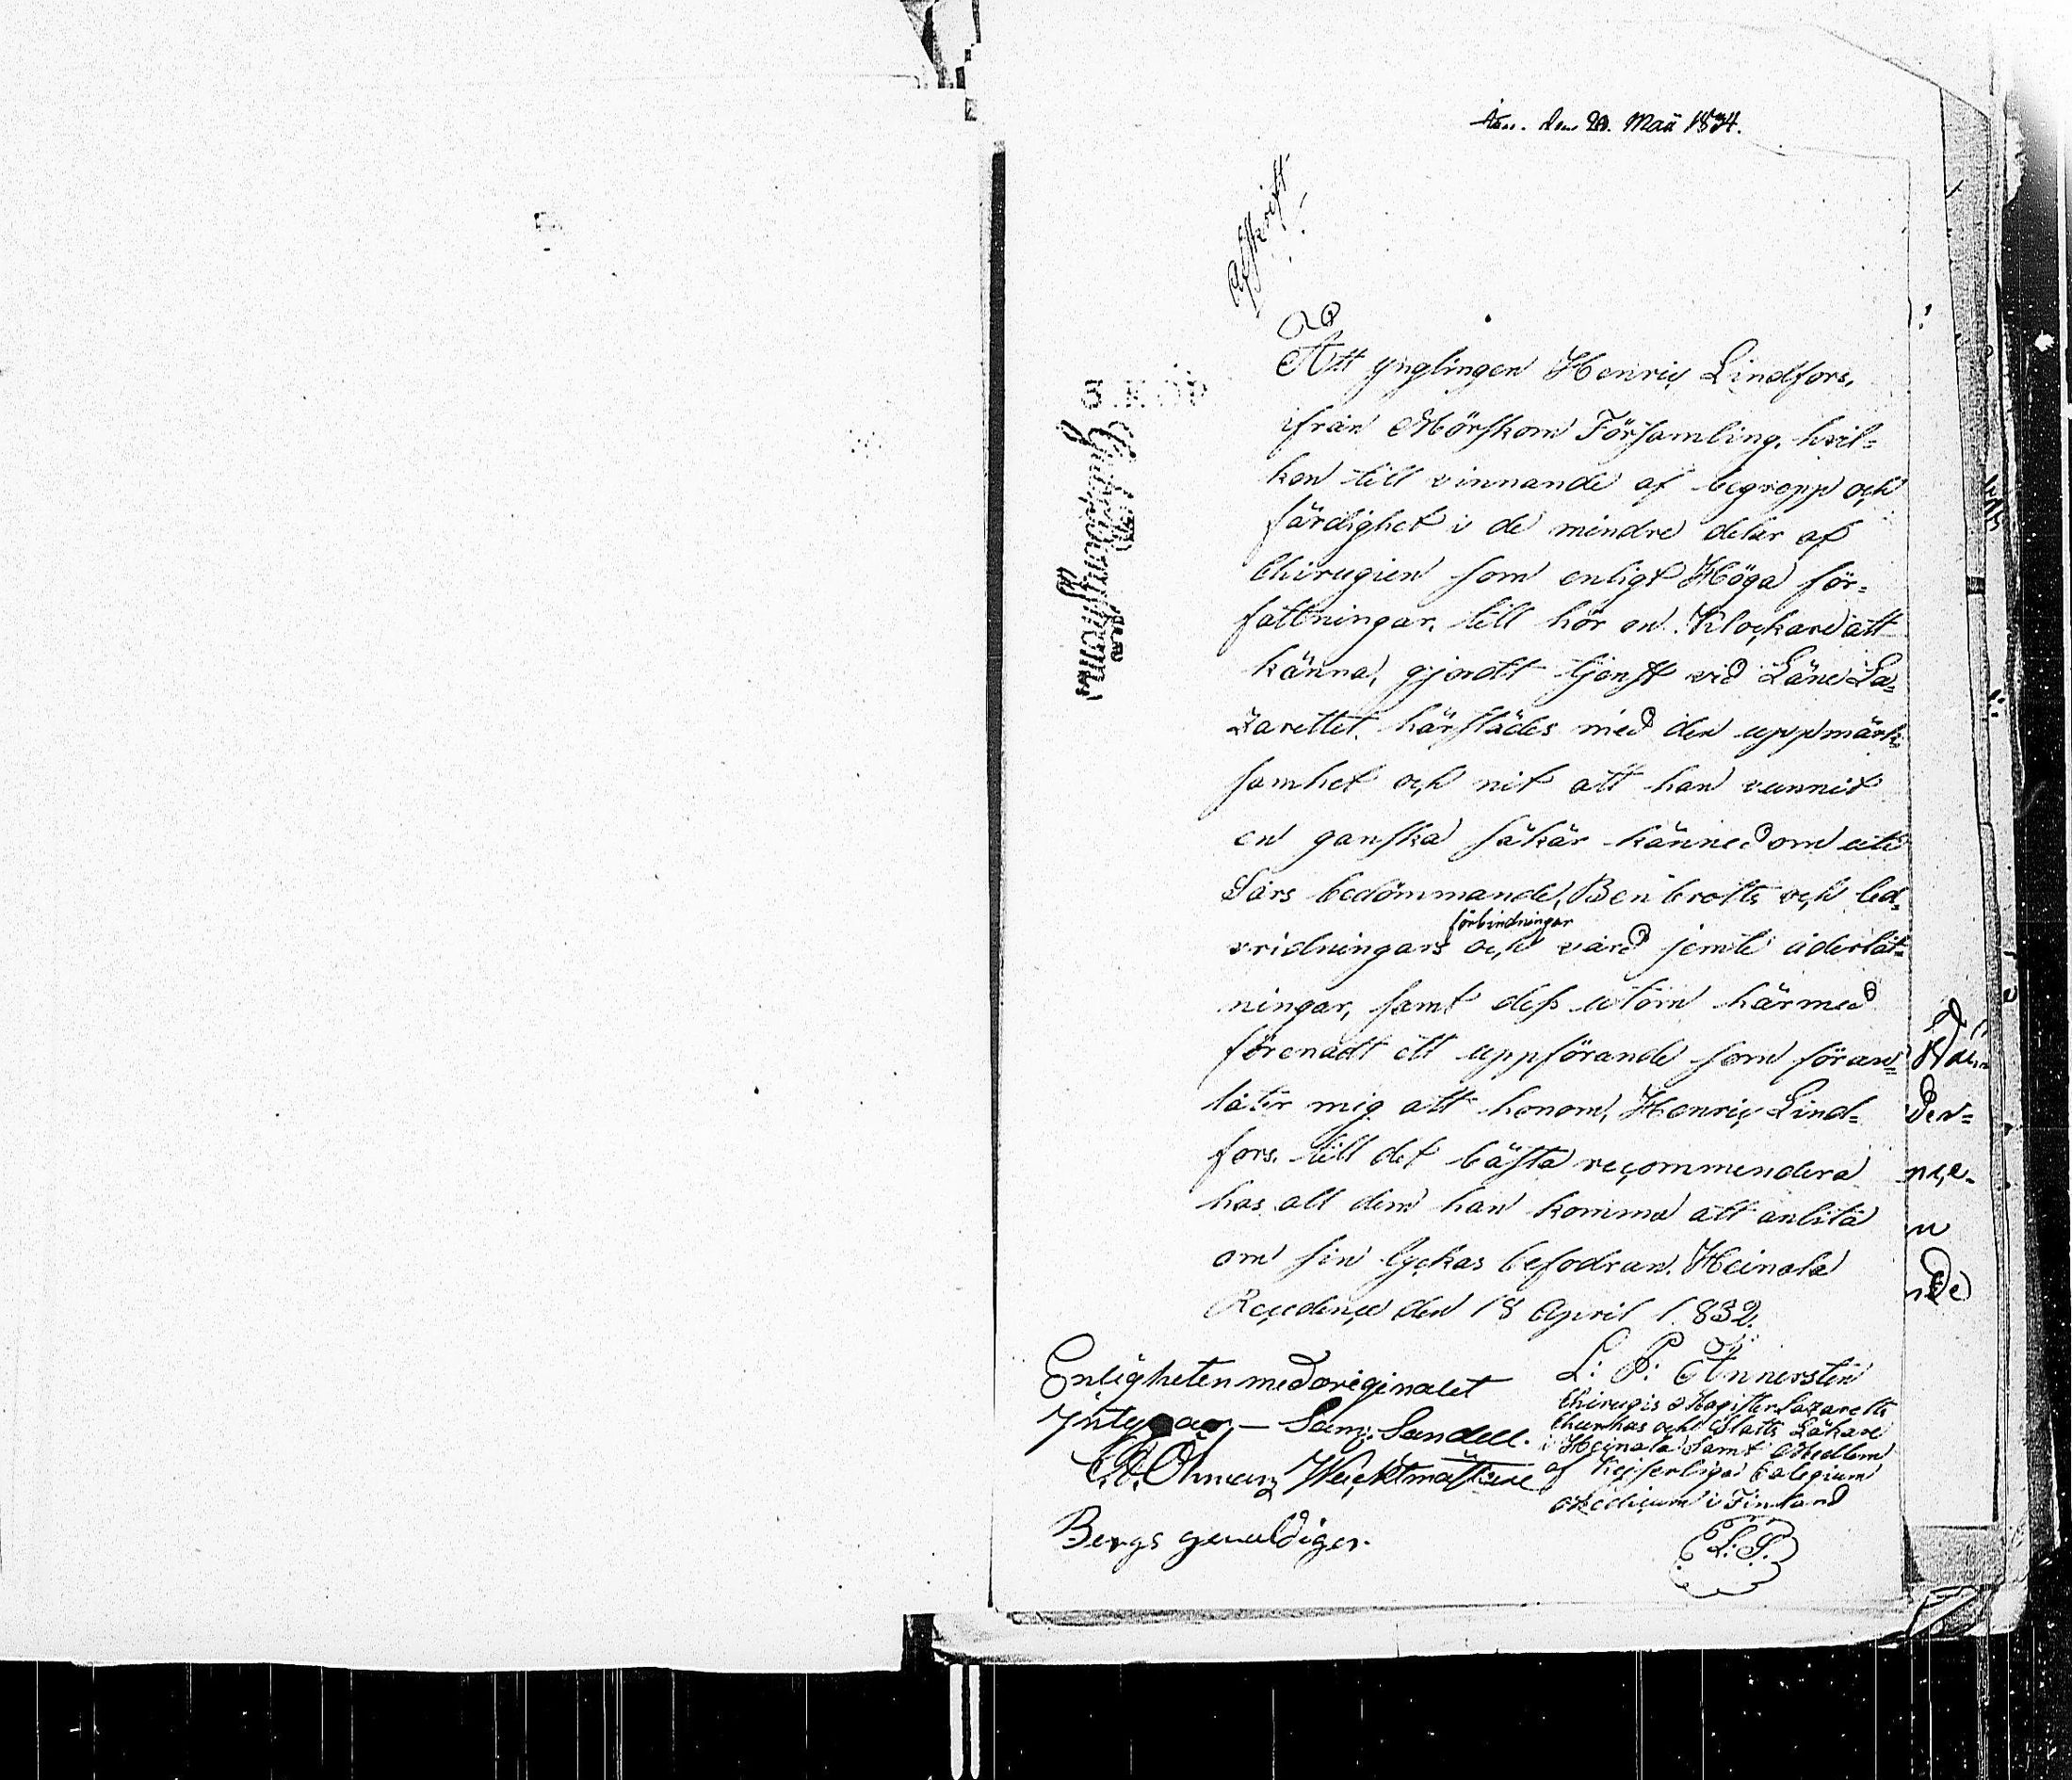 den 20. Maii 1834.
Afskrift.
Att ynglingen Henric Lindfors,
ifrån Mörskom Församling, hvil=
ken till vinnande af begrepp och
färdighet i de mindre delar af
Chirugien som enligt Höga för=
fattningar, till hör en Klockare att
känna, gjordt tjenst vid Läne La=
zarettet härstädes med den uppmärk=
samhet och nit att han vunnit
en ganska säkär kännedom uti
Sårs bedömmande, Ben brotts och led=
förbindningar
vridningars och vård jemte åderlåt=
ningar, samt dess utom härmed
förenadt ett uppförande som föran=
låter mig att honom, Henric Lind=
fors, till det bästa recommendera
hos all dem han komma att anlita
om sin lyckas befodran. Heinola
Recidence den 18 April 1832.
L: P: Annerstin
Chirugis Magister Lazaretts
Churhus och Slatts Läkare
i Heinola samt Medlem
af Kejserliga Colegium
Medicum i Finland
L.S.
Enligheten med originalet
Intyga — Sam: Sandell.
Öhman Wacktmästare
Bergs gevaldiger.
den=
nde